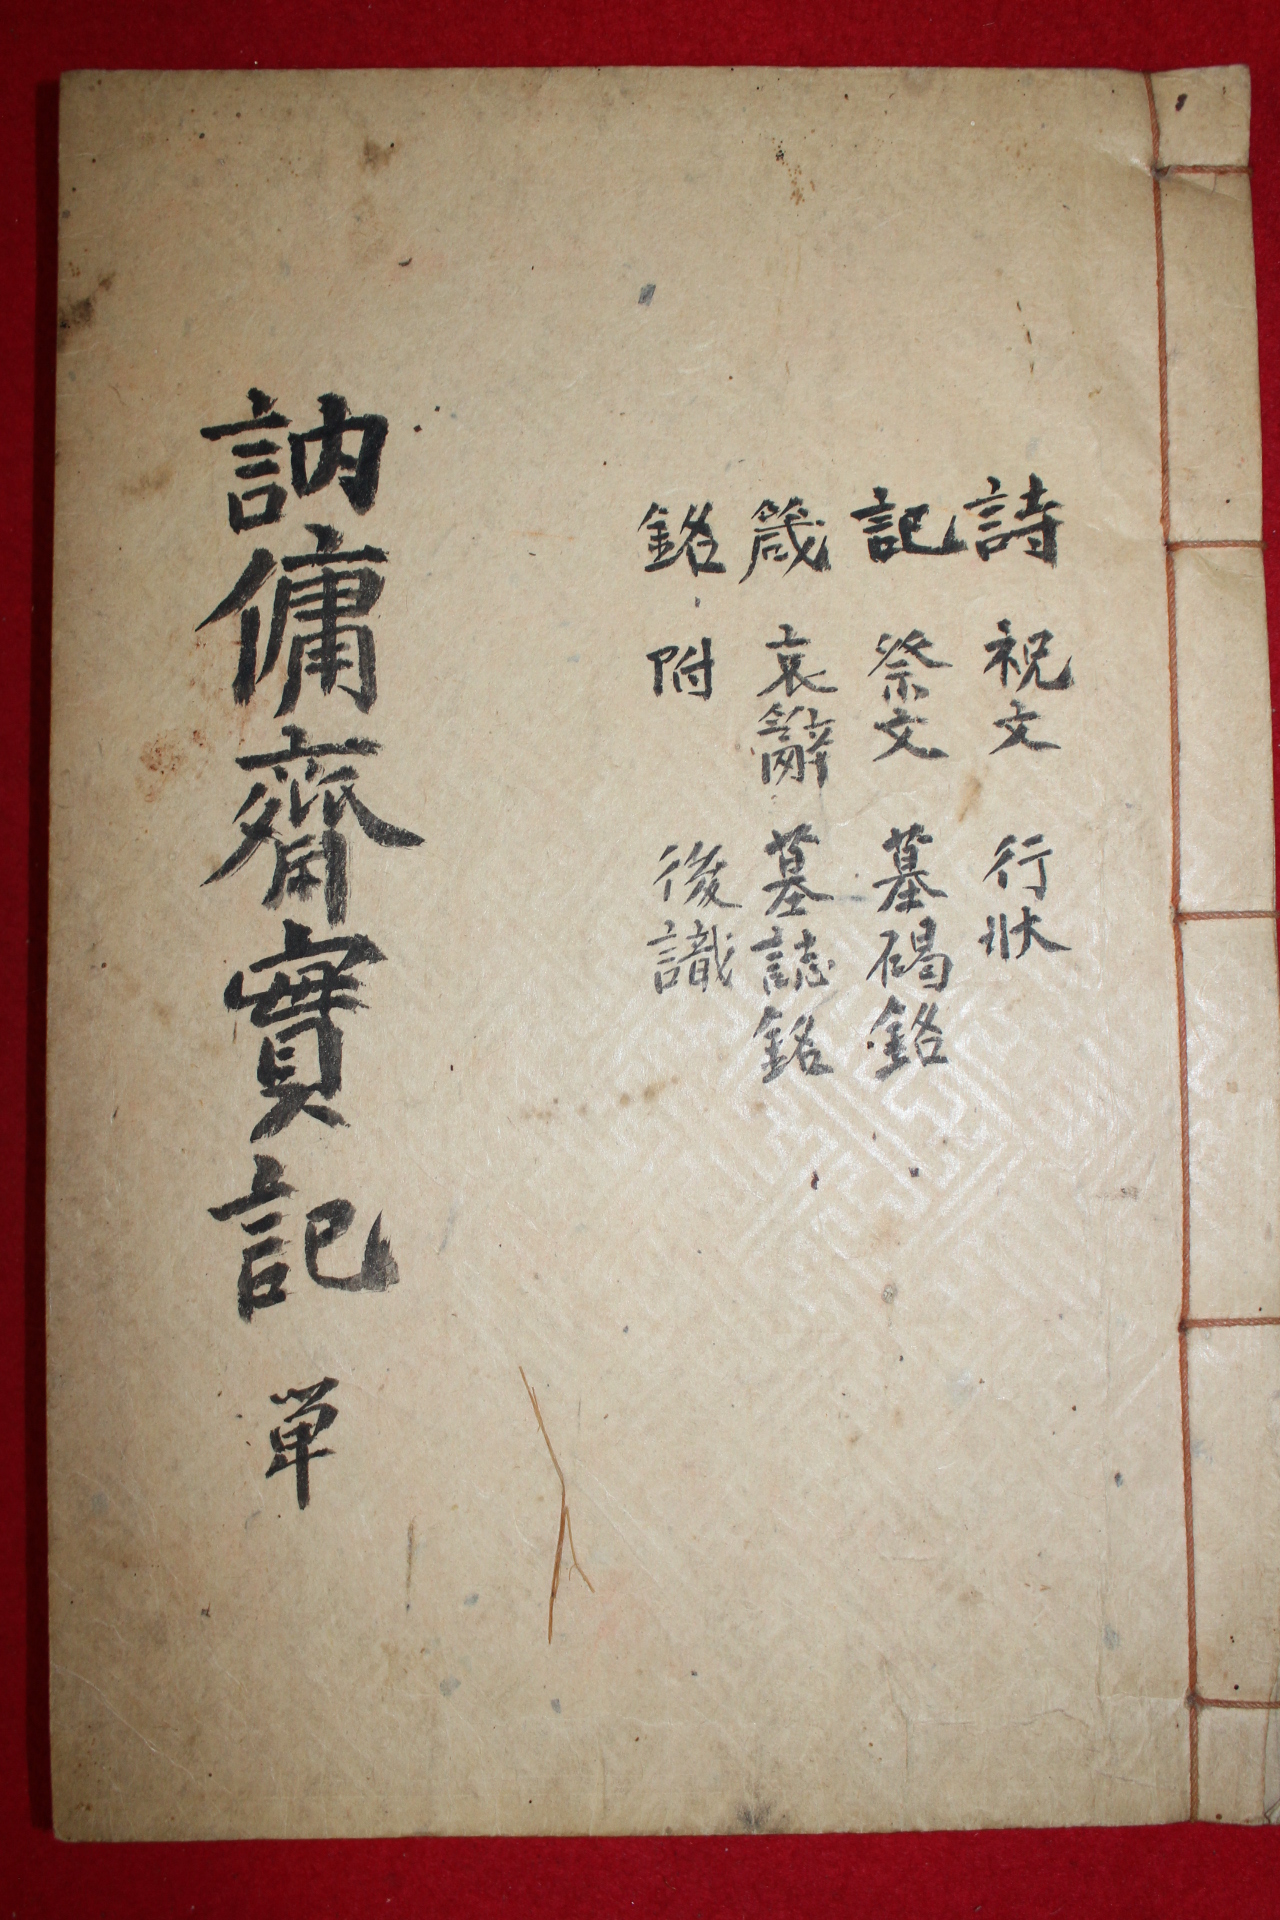 詩 祝文 行狀
記 祭文 墓碣銘
箴 哀辭 墓誌銘
銘 附 後識
訥傭齋實記 单